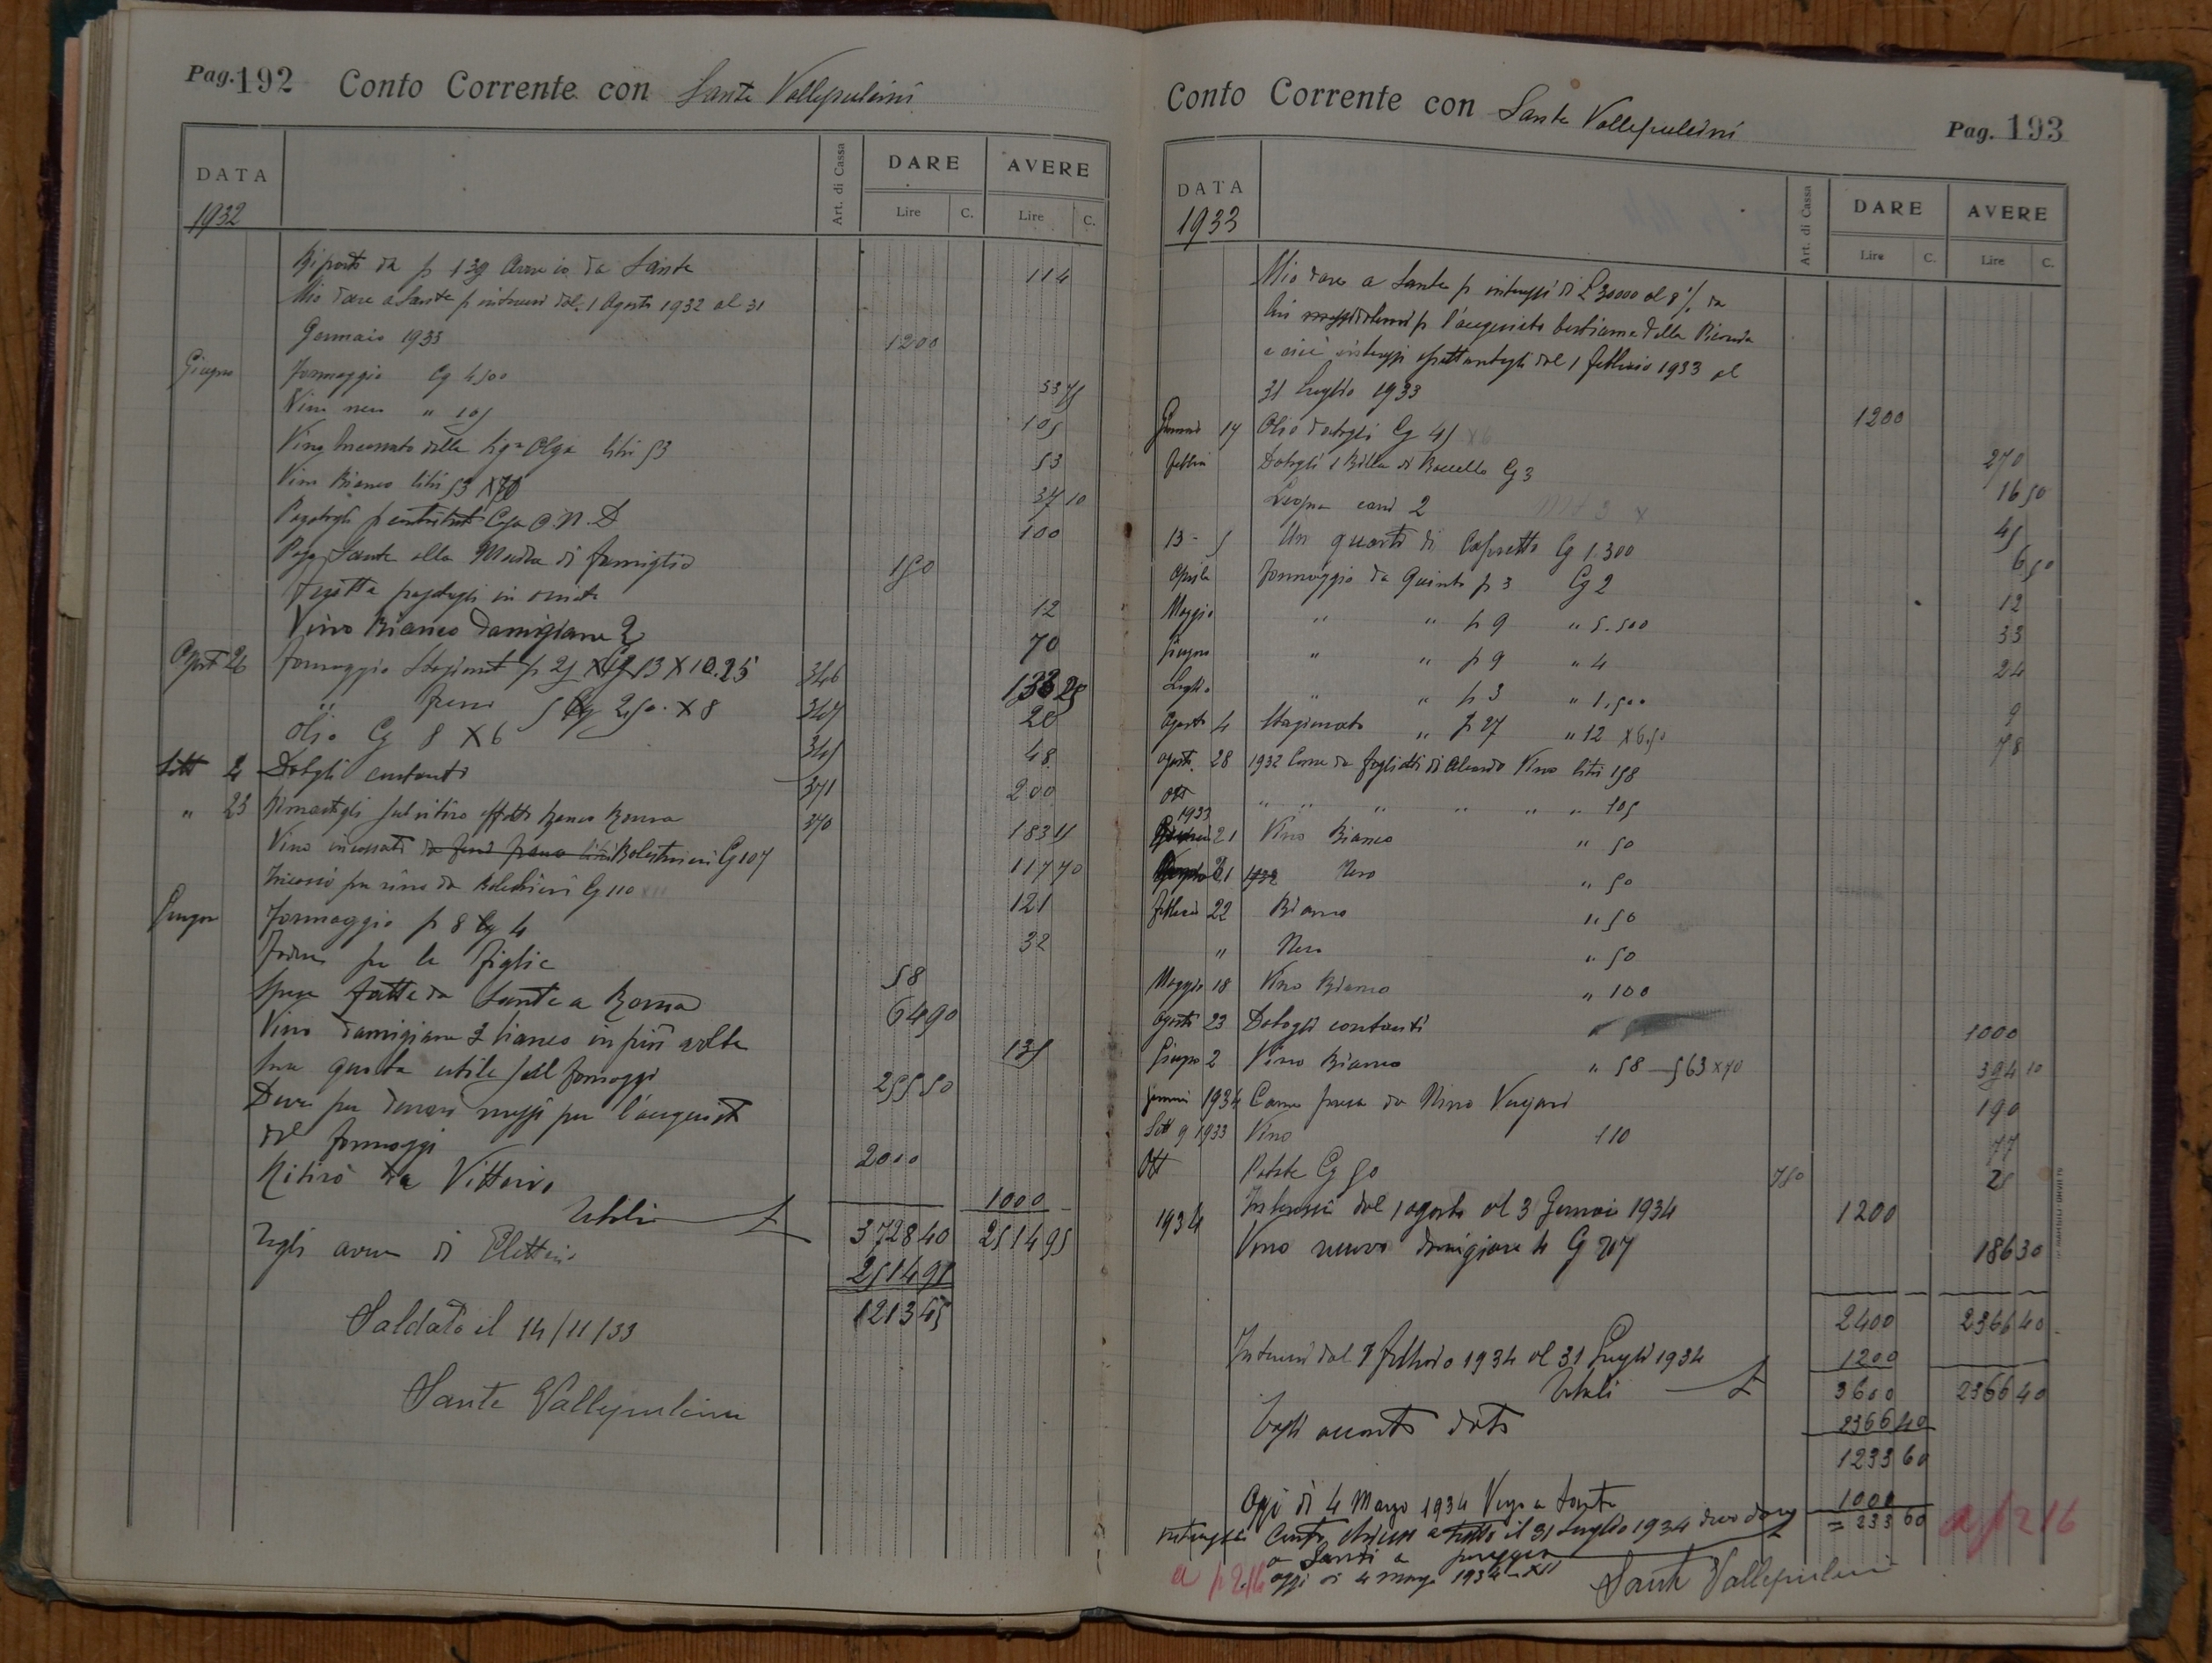 Pag. 192 Conto Corrente con Sante Vallepulcini
DATA Art. di Cassa DARE AVERE
1932 Lire C. Lire C.
Riporto da p 139 Avere io da Sante 114
Mio dare a Sante p interessi dal 1 Agosto 1932 al 31
Gennaio 1933 1200
Giugno Formaggio Cg 4500
Vino nero " 105 105
Vino Incassato dalla Sig.a Olga litri 53 53
Vino Bianco litri 53 X 70 37 10
Pagatogli p contributi Casa O.N.D 100
Pagò Sante alla Madia di famiglia 150
pagatogli in 12
Vino Bianco Damigiane 2 70
Agost 26 Formaggio Stagionat p 25 13 X 10.25 346 133 25
" fresco 5 Cg 2,50. X 8 347 20
Olio Cg 8 X 6 345 48
Sett 2 Datogli contanti 371 200
" 23 Rimastogli sul ritiro effetto Banco Roma 370
Vino incassato Balestrieri Cg 107 117 70
Incassò per vino da Balestrieri Cg 110 121
Giugno Formaggio p 8 Cg 4 32
per le figlie 58
Spese fatte da Sante a Roma 64 90
Vino damigiane 3 bianco in più volte 135
Sua quota utile sul formaggi 255 50
Dare per denari messi per l'acquisto
del formaggi 2000
Ritirò da Vittorio 1000
Totali £ 3728 40 2514 95
Togli avere di 2514 95
1213 45
Saldato il 14/11/33
Sante Vallepulcini
Conto Corrente con Sante Vallepulcini Pag. 193
DATA Art. di Cassa DARE AVERE
1933 Lire C. Lire C.
Mio dare a Sante p interessi di £ 30000 al 8% da
lui p l'acquisto bestiame della
e cioè interessi spettantegli dal 1 febbraio 1933 al
31 Luglio 1933 1200
Gennaio 14 Olio datogli Cg 45 x6 270
Febbrai Datogli 1 Cg 3 16 50
Legna 2 45
13 - 5 Un quarto di Capretto Cg 1.300 6 50
Aprile Formaggio da Quinto p 3 Cg 2 12
Maggio " " p 9 " 5.500 33
Giugno " " p 9 " 4 24
Luglio " " p 3 " 1,500 9
Agosto 4 Stagionato " p 27 " 12 X 6.50 78
Agosto 28 1932 Come da foglietti di Vino litri 158
Ott " " " " " " 105
1933
21 Vino Bianco " 50
21 1932 Nero " 50
Febbraio 22 Bianco " 50
" Nero " 50
Maggio 18 Vino Bianco " 100
Agosto 23 Datogli contanti 1000
Giugno 2 Vino Bianco " 58 — 563 x 70 394 10
Gennai 1934 Carne presa da Nino 190
Sett 9 1933 Vino 110 77
Ott Patate Cg 50 750 25
1934 Interessi dal 1 agosto al 3 Gennai 1934 1200
Vino nuovo damigiane 4 Cg 207 186 30
2400 2366 40
Interessi dal 1 febbraio 1934 al 31 Luglio 1934 1200
Totali £ 3600 2366 40
Togli acconto dato 2366 40
1233 60
Oggi di 4 Marzo 1934 Verso a Sante 1000
Conto chiuso a tutto il 31 Luglio 1934 devo dare = 233 60 a p 216
a Sante a pareggio
a p 216 oggi di 4 marzo 1934 - XII Sante Vallepulcini